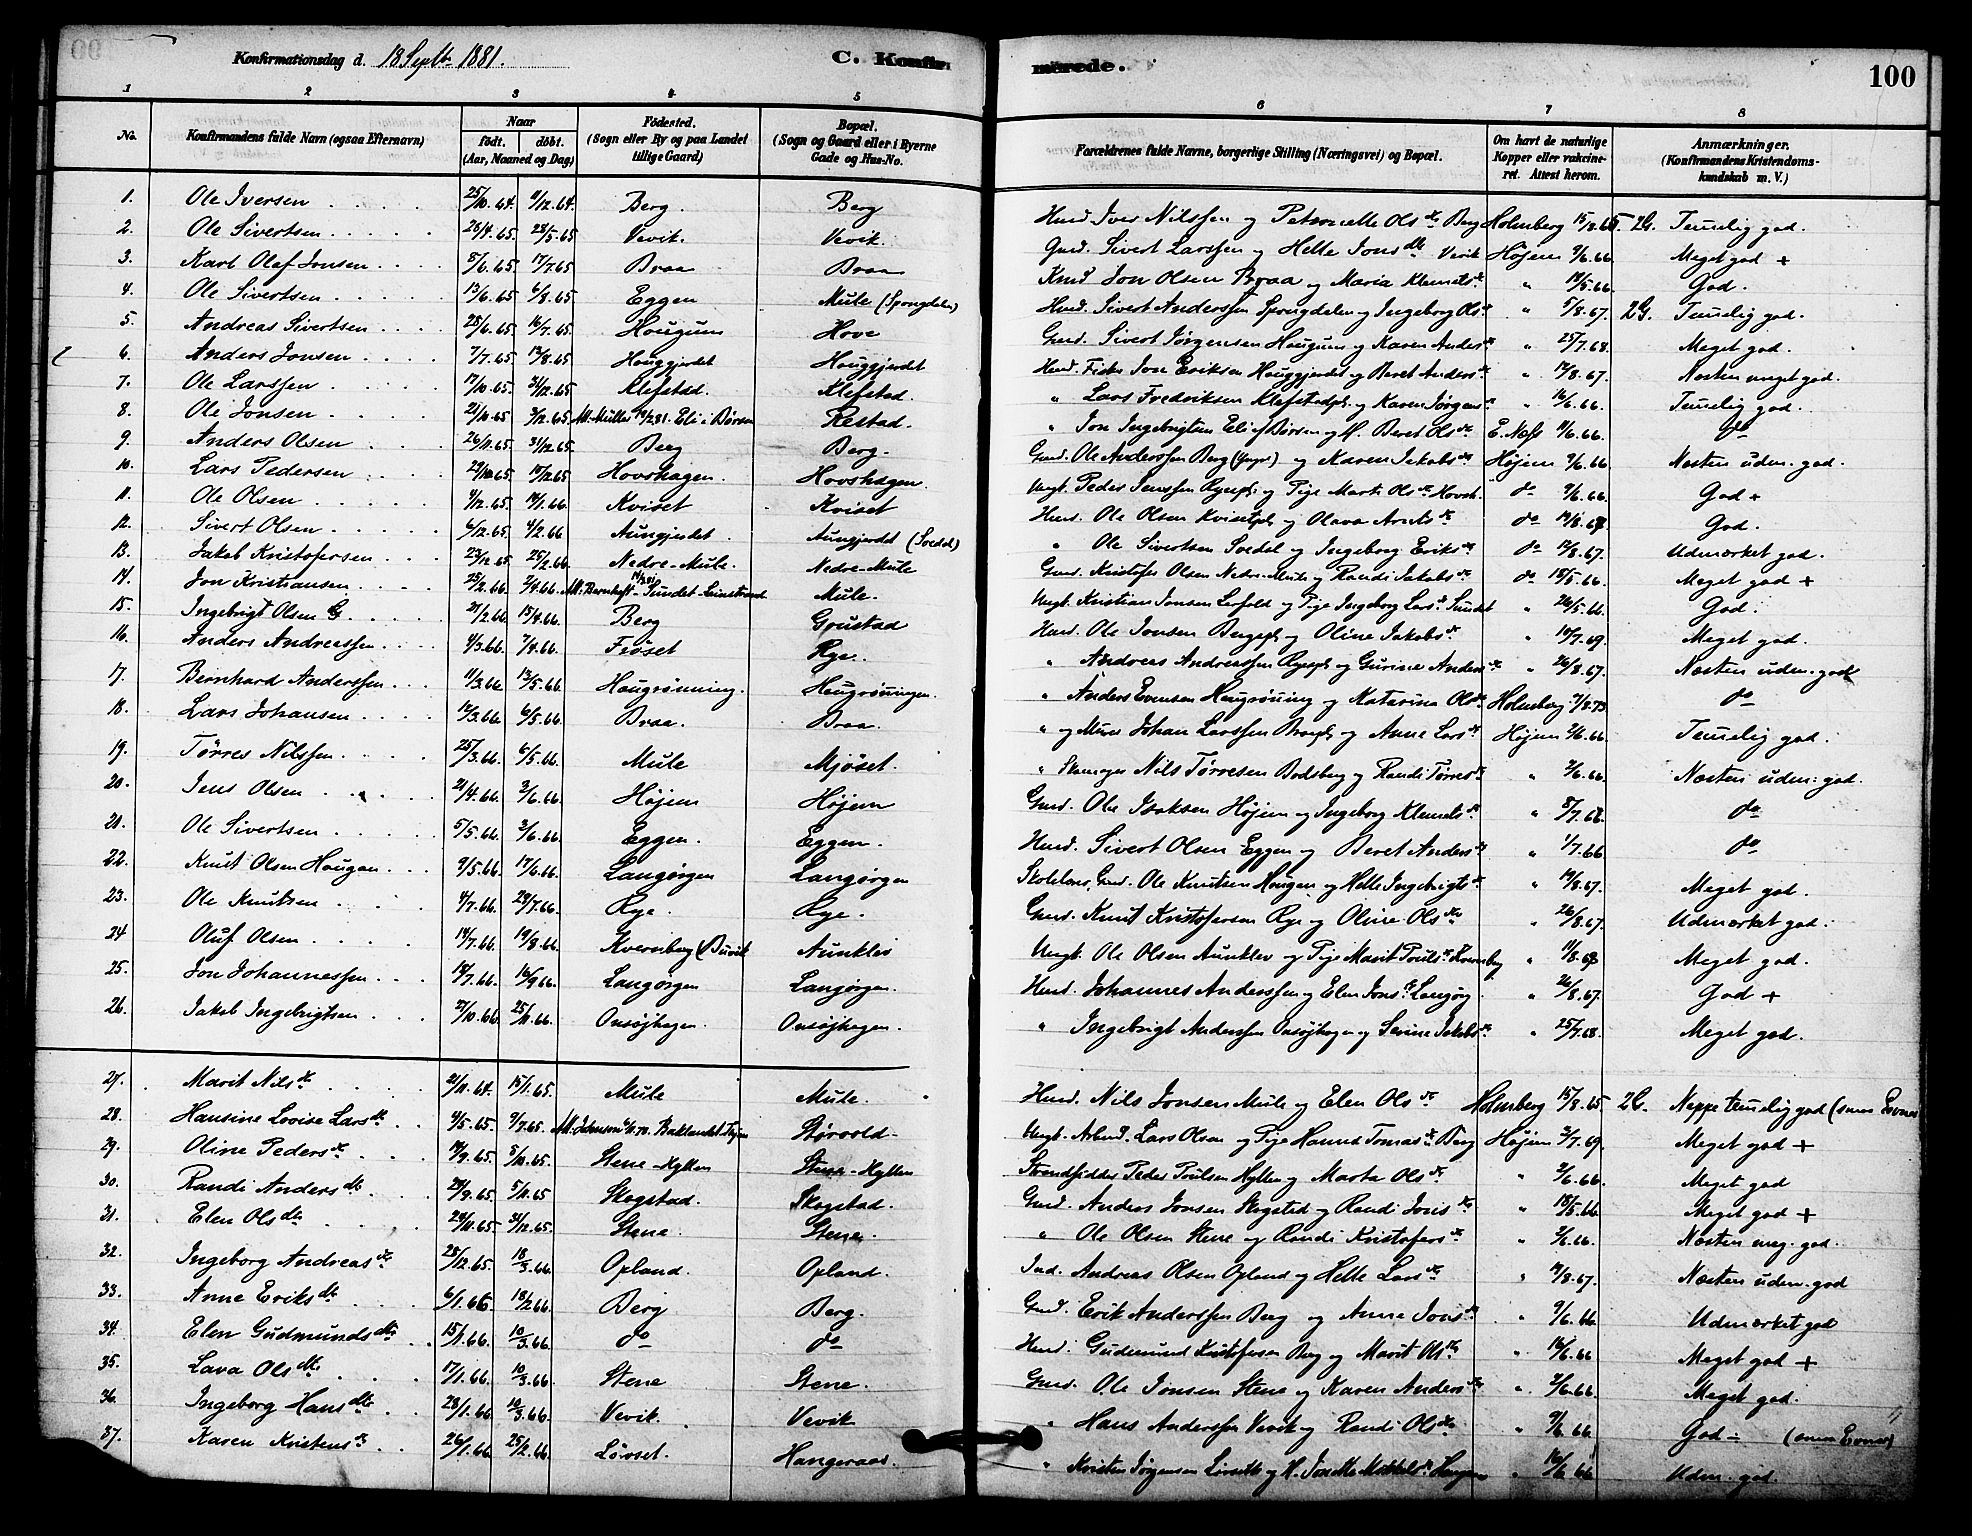 Konfirmationsdag d. 18 Septbr 1881. C. Konfirmerede. 100
1 2 3 4 5 6 7 8
No. Konfirmandens fulde Navn (ogsaa Efternavn) Naar født. døbt. (Aar, Maaned og Dag) Fødested. (Sogn eller By og paa Landet tillige Gaard) Bopæl. (Sogn og Gaard eller i Byerne Gade og Hus-No. Forældrenes fulde Navne, borgerlige Stilling (Næringsvei) og Bopæl. Om havt de naturlige Kopper eller vakcineret. Attest herom. Anmærkninger. (Konfirmandens Kristendomskundskab m. V.)
1. Ole Iversen 25/10.64. 11/12.64. Berg. Berg Husd. Iver Nilssen og Petronelle Olsdr. Berg Holmberg 15/8.65. 2G. Temelig god.
2. Ole Sivertsen 26/4.65. 28/5.65 Vevik. Vevik. Gmd. Sivert Larssen og Helle Jonsdtr. Vevik Højem 9/6.66. Meget god +
3. Karl Olaf Jonsen 5/6.65. 17/7.65 Braa Braa Jon Olsen Braa og Maria Klemetsdr. " 10/5.66. God.
4. Ole Sivertsen 13/6.65 6/8.65 Eggen Mule (Spongdalen) Husd. Sivert Anderssen Spongdalen og Ingeborg Olsdr. " 5/8.67. 2G. Temelig god.
5. Andreas Sivertsen 25/6.65. 16/7.65. Hougum Hove Gmd. Sivert Jørgensen Hougum og Karen Andersdr. " 25/7.68. Meget god.
6. Anders Jonsen 7/7.65 13/8.65 Houggjerdet Houggjerdet Husd. Fisker Jon Eriksen Houggjerdet og Beret Andersdr. " 12/8.67. Næsten meget god.
7. Ole Larssen 17/10.65. 31/12.65 Klefstad. Klefstad. " Lars Fredriksen Klefstadpl. og Karen Jørgensdr. " 16/6.66. Temelig god.
8. Ole Jonsen 25/10.65 3/12.65 Att. Müller Eli i Børsen Restad. " Jon Ingebrigtsen Eli af Børsen og H. Beret Olsdr. E. Næss 11/6.66. do
9. Anders Olsen 26/11.65. 31/12.65. Berg Berg. Gmd. Ole Anderssen Berg og Karen Jakobsdr. Højem 9/6.66 Næsten udm. god.
10. Lars Pedersen 29/10.65 10/12.65 Hovshagen. Hovshagen. Ungk. Peder Jenssen Ryepl. og Pige Marit Olsdr. Hovsh. do 9/6.66. God +
11. Ole Olsen 4/12.65. 14/1.66. Kviset Kviset Husd. Ole Olsen Kvisetpl. og Olava Arntsdr. do 13/8.67 God.
12. Sivert Olsen 6/12.65. 4/2.66 Aungjerdet Aungjerdet (Svedal) " Ole Sivertsen Svedal og Ingeborg Eriksdr. do 12/8.67. Udmærket god.
13. Jakob Kristofersen 23/12.65 25/2.66. Nedre-Mule. Nedre-Mule Gmd. Kristofer Olsen Nedre-Mule og Randi Jakobsdr. do 18/5.66. Meget god +
14. Jon Kristiansen 25/2.66. 2/4.66. Sundet-Leinstrand Mule. Ungk. Kristian Jonsen Lerfald og Pige Ingeborg Larsdr. Sundet " 26/5.66. God.
15. Ingebrigt Olsen G. 21/2.66 15/4.66. Berg Grustad Husd. Ole Jonsen Bergspl. og Oline Jakobsdr. " 10/7.69. Meget god.
16. Anders Andreassen 4/3.66. 7/4.66. Frøset Rye. " Andreas Andreassen Ryespl. og Gurine Andersdr. " 26/8.67. Næsten udm. god
17. Bernhard Anderssen 11/3.66 13/5.66. Hougrønning. Hougrønningen. " Anders Evensen Hougrønning og Katarina Olsdr. Holmberg 7/8.73 do
18. Lars Johansen 12/3.66 6/5.66. Braa. Braa. " og Murer Johan Larssen Braapl. og Anne Larsdr. Højem 2/6.66. Temelig god.
19. Tørres Nilssen 25/3.66. 6/5.66. Mule Mjøset. " Skomager Nils Tørresen Bodsberg og Randi Tørresdr. " 2/6.66. Næsten udm. god.
20. Jens Olsen 21/4.66. 3/6.66. Højem Højem Gmd. Ole Isaksen Højem og Ingeborg Klemetsdr. " 8/7.68. do
21. Ole Sivertsen 5/5.66. 3/6.66. Eggen. Eggen. Husd. Sivert Olsen Eggen og Beret Andersdr. " 1/7.66 do
22. Knut Olsen Hougan 9/5.66. 17/6.66. Langørgen Langørgen Skolelærer, Gmd. Ole Knutsen Hougan og Helle Ingebrigtsdr. " 12/8.67. Meget god.
23. Ole Knutsen 4/7.66. 29/7.66. Rye. Rye. Gmd. Knut Kristofersen Rye og Oline Olsdtr. " 26/8.67. Udmærket god.
24 Oluf Olsen 14/7.66. 19/8.66. Kvernberg (Buvik Aunklev Ungk. Ole Olsen Aunklev og Pige Marit Poulsdr. Kvernberg " 11/8.68 Meget god.
25. Jon Johannessen 14/7.66. 16/9.66. Langørgen Langørgen. Husd. Johannes Anderssen og Elen Jonsdr. Langørg. " 26/8.67. God +
26. Jakob Ingebrigtsen 21/10.66 25/11.66. Onsøjhagen. Onsøjhagen. " Ingebrigt Anderssen Onsøjhagen og Serine Jakobsdr. " 25/7.68. Meget god.
27. Marit Nilsdr. 21/11.64. 15/1.65. Mule Mule. Husd. Nils Jonsen Mule og Elen Olsdr. Holmberg 15/8.65 2G. Neppe temelig god (smaa Evner
28. Hansine Lovise Larsdtr. 4/5.65. 9/7.65. Baklandet Thjem Størvold Ungk. Arbmd. Lars Olsen og Pige Hanna Tomasdr. Berg Højem 3/7.69. Meget god +
29. Oline Pedersdr. 14/9.65. 8/10.65. Stene-Hyllen Stene-Hyllen Strandsidder Peder Poulsen Hyllen og Marta Olsdr. " 2/6.66. Meget god
30. Randi Andersdtr. 24/9.65 5/11.65 Skogstad. Skogstad. Gmd. Anders Jonsen Skogstad og Randi Jonsdr. " 18/5.66. Meget god +
31. Elen Olsdtr. 24/11.65. 31/12.65. Stene. Stene. " Ole Olsen Stene og Randi Kristofersdr. " 2/6.66. Næsten meg. god.
32. Ingeborg Andreasdr. 28/12.65. 18/3.66. Opland. Opland. Ind. Andreas Olsen Opland og Helle Larsdr. " 14/8.67. Næsten udm. god
33. Anne Eriksdtr. 6/1.66 18/2.66. Berg Berg. Gmd. Erik Anderssen Berg og Anne Jonsdr. " 9/6.66 Udmærket god
34. Elen Gudmundsdtr. 15/1.66. 10/3.66. do do Husd. Gudmund Kristofersen Berg og Marit Olsdr. " 16/6.66 Meget god +
35. Lava Olsdtr. 17/1.66. 10/3.66 Stene Stene. Gmd. Ole Jonsen Stene og Karen Andersdr. " 2/6.66. Meget god.
36. Ingeborg Hansdtr. 28/1.66 10/3.66. Vevik. Vevik " Hans Anderssen Vevik og Randi Olsdtr. " 9/6.66. God ÷ (smaa Evner)
37. Karen Kristensdr. 26/1.66 25/2.66. Lørset. Hangeraas. " Kristen Jørgensen og H. " 16/6.66 Udm. god.